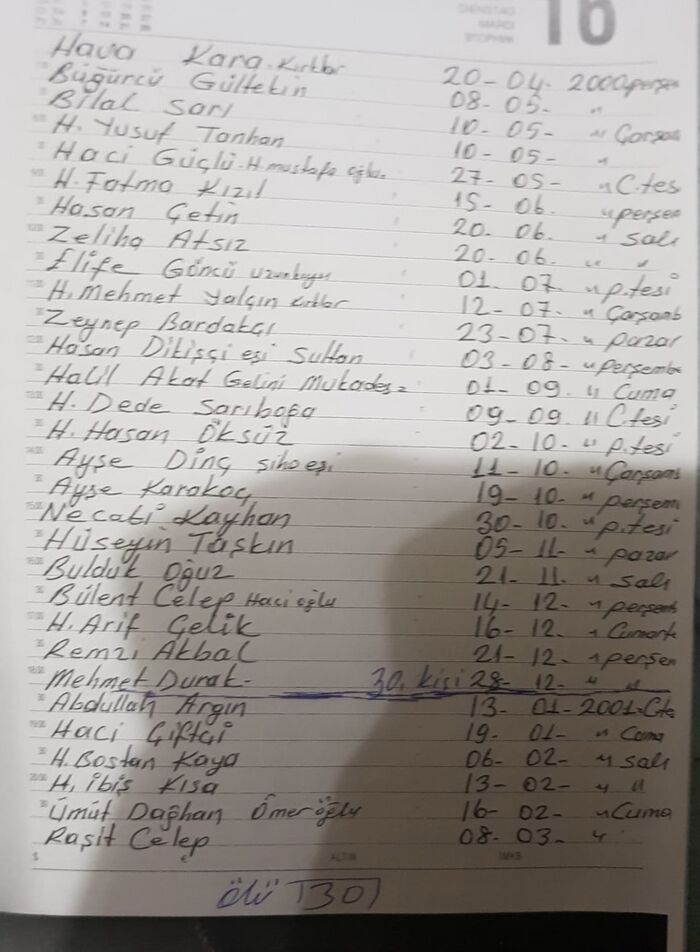 DIENSTAG
MARDI
16
Hava Kara. Kırklar 20-04. 2000 perşem
Büğürcü Gültekin 08-05- "
Bilal Sarı 10-05- " Çarşam
H. Yusuf Tanhan 10-05- "
Haci Güçlü-H.mustafa oğlu. 27-05- " C.tes
H. Fatma Kızıl 15-06. " perşem
Hasan Çetin 20-06. " Salı
Zeliha Atsız 20-06. " "
Elife Göncü 01-07. " p.tesi
H. Mehmet Yalçın Kırklar 12-07. " Çarşamb
Zeynep Bardakçı 23-07- " pazar
Hasan Dikişçi eşi Sultan 03-08- " perşembe
Halil Akat Gelini Mukades 01-09. " Cuma
H. Dede Sarıboğa 09-09. " C.tesi
H. Hasan Öksüz 02-10- " p.tesi
Ayşe Dinç 11-10. " Çarşamb
Ayşe Karakoç 19-10- " perşem
Necati Kayhan 30-10. " p.tesi
Hüseyin Taşkın 05-11- " pazar
Bulduk Oğuz 21-11. " Salı
Bülent Celep Hacioğlu 14-12- " perşemb
H. Arif Çelik 16-12. " Cumarte
Remzi Akbal 21-12. " perşem
Mehmet Durak- 30, kişi 28-12- " "
Abdullah Argın 13-01-2001-Cte
Haci Çiftçi 19-01- " Cuma
H. Bostan Kaya 06-02- " Salı
H. İbiş Kısa 13-02- " "
Ümüt Dağhan Ömeroğlu 16-02- " Cuma
Raşit Celep 08-03- "
$ € ALTIN IMKB
ölü 30